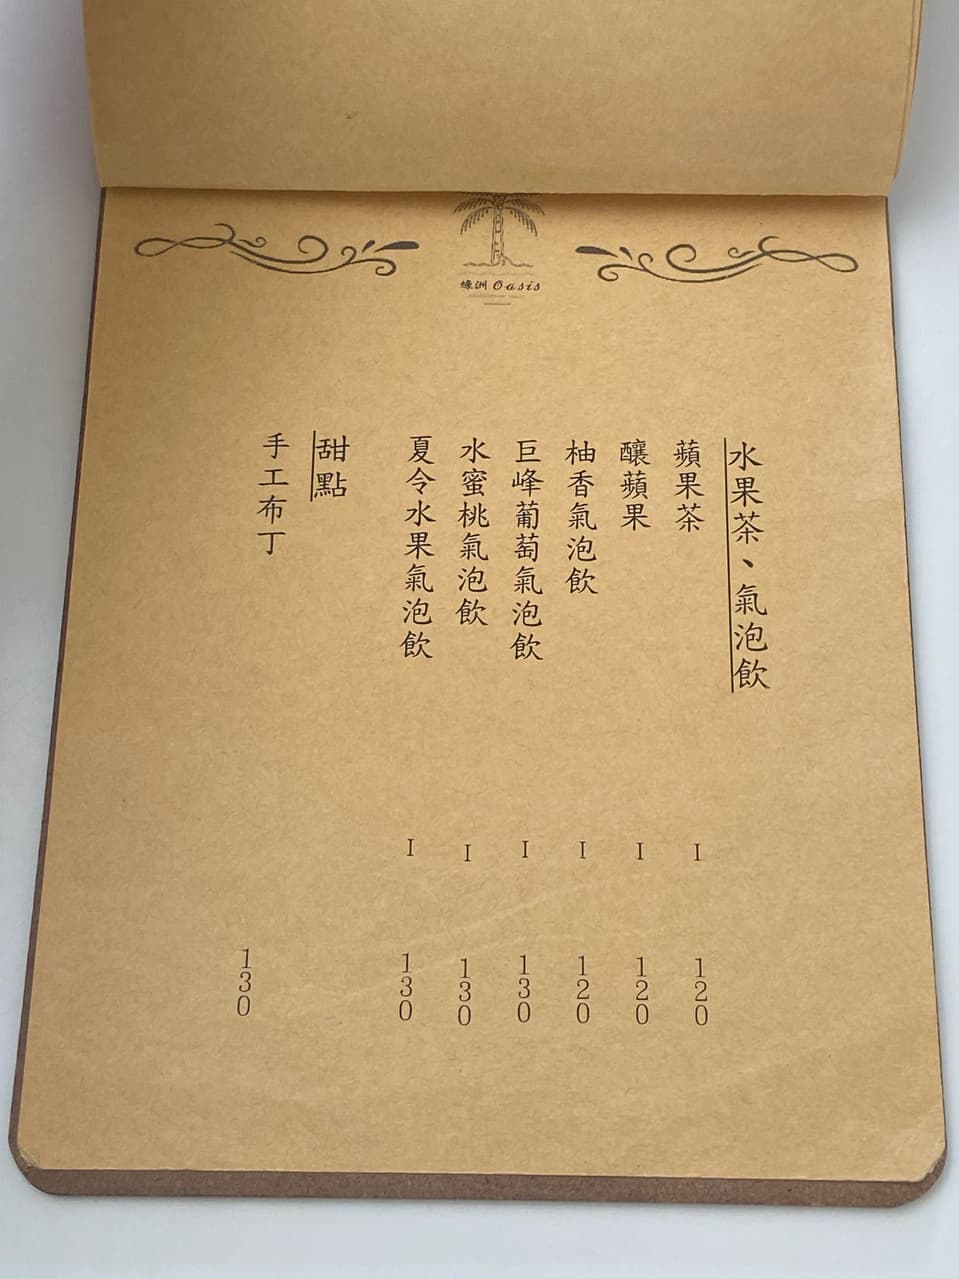 綠洲 Oasis
水果茶、氣泡飲
蘋果茶 I 120
釀蘋果 I 120
柚香氣泡飲 I 120
巨峰葡萄氣泡飲 I 130
水蜜桃氣泡飲 I 130
夏令水果氣泡飲 I 130
甜點
手工布丁 130